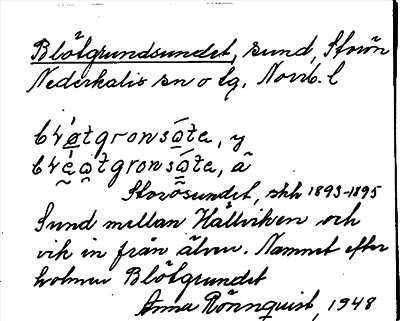 Blötgrundsundet, sund, Storön
Nederkalix sn o tg. Norrb. l
tgronsǫte, y
tgronsǫte, ä
Storösundet, skh 1893-1895
Sund mellan Hållviken och
vik in från älven. Namnet efter
holmen Blötgrundet
Anna Rönnquist, 1948